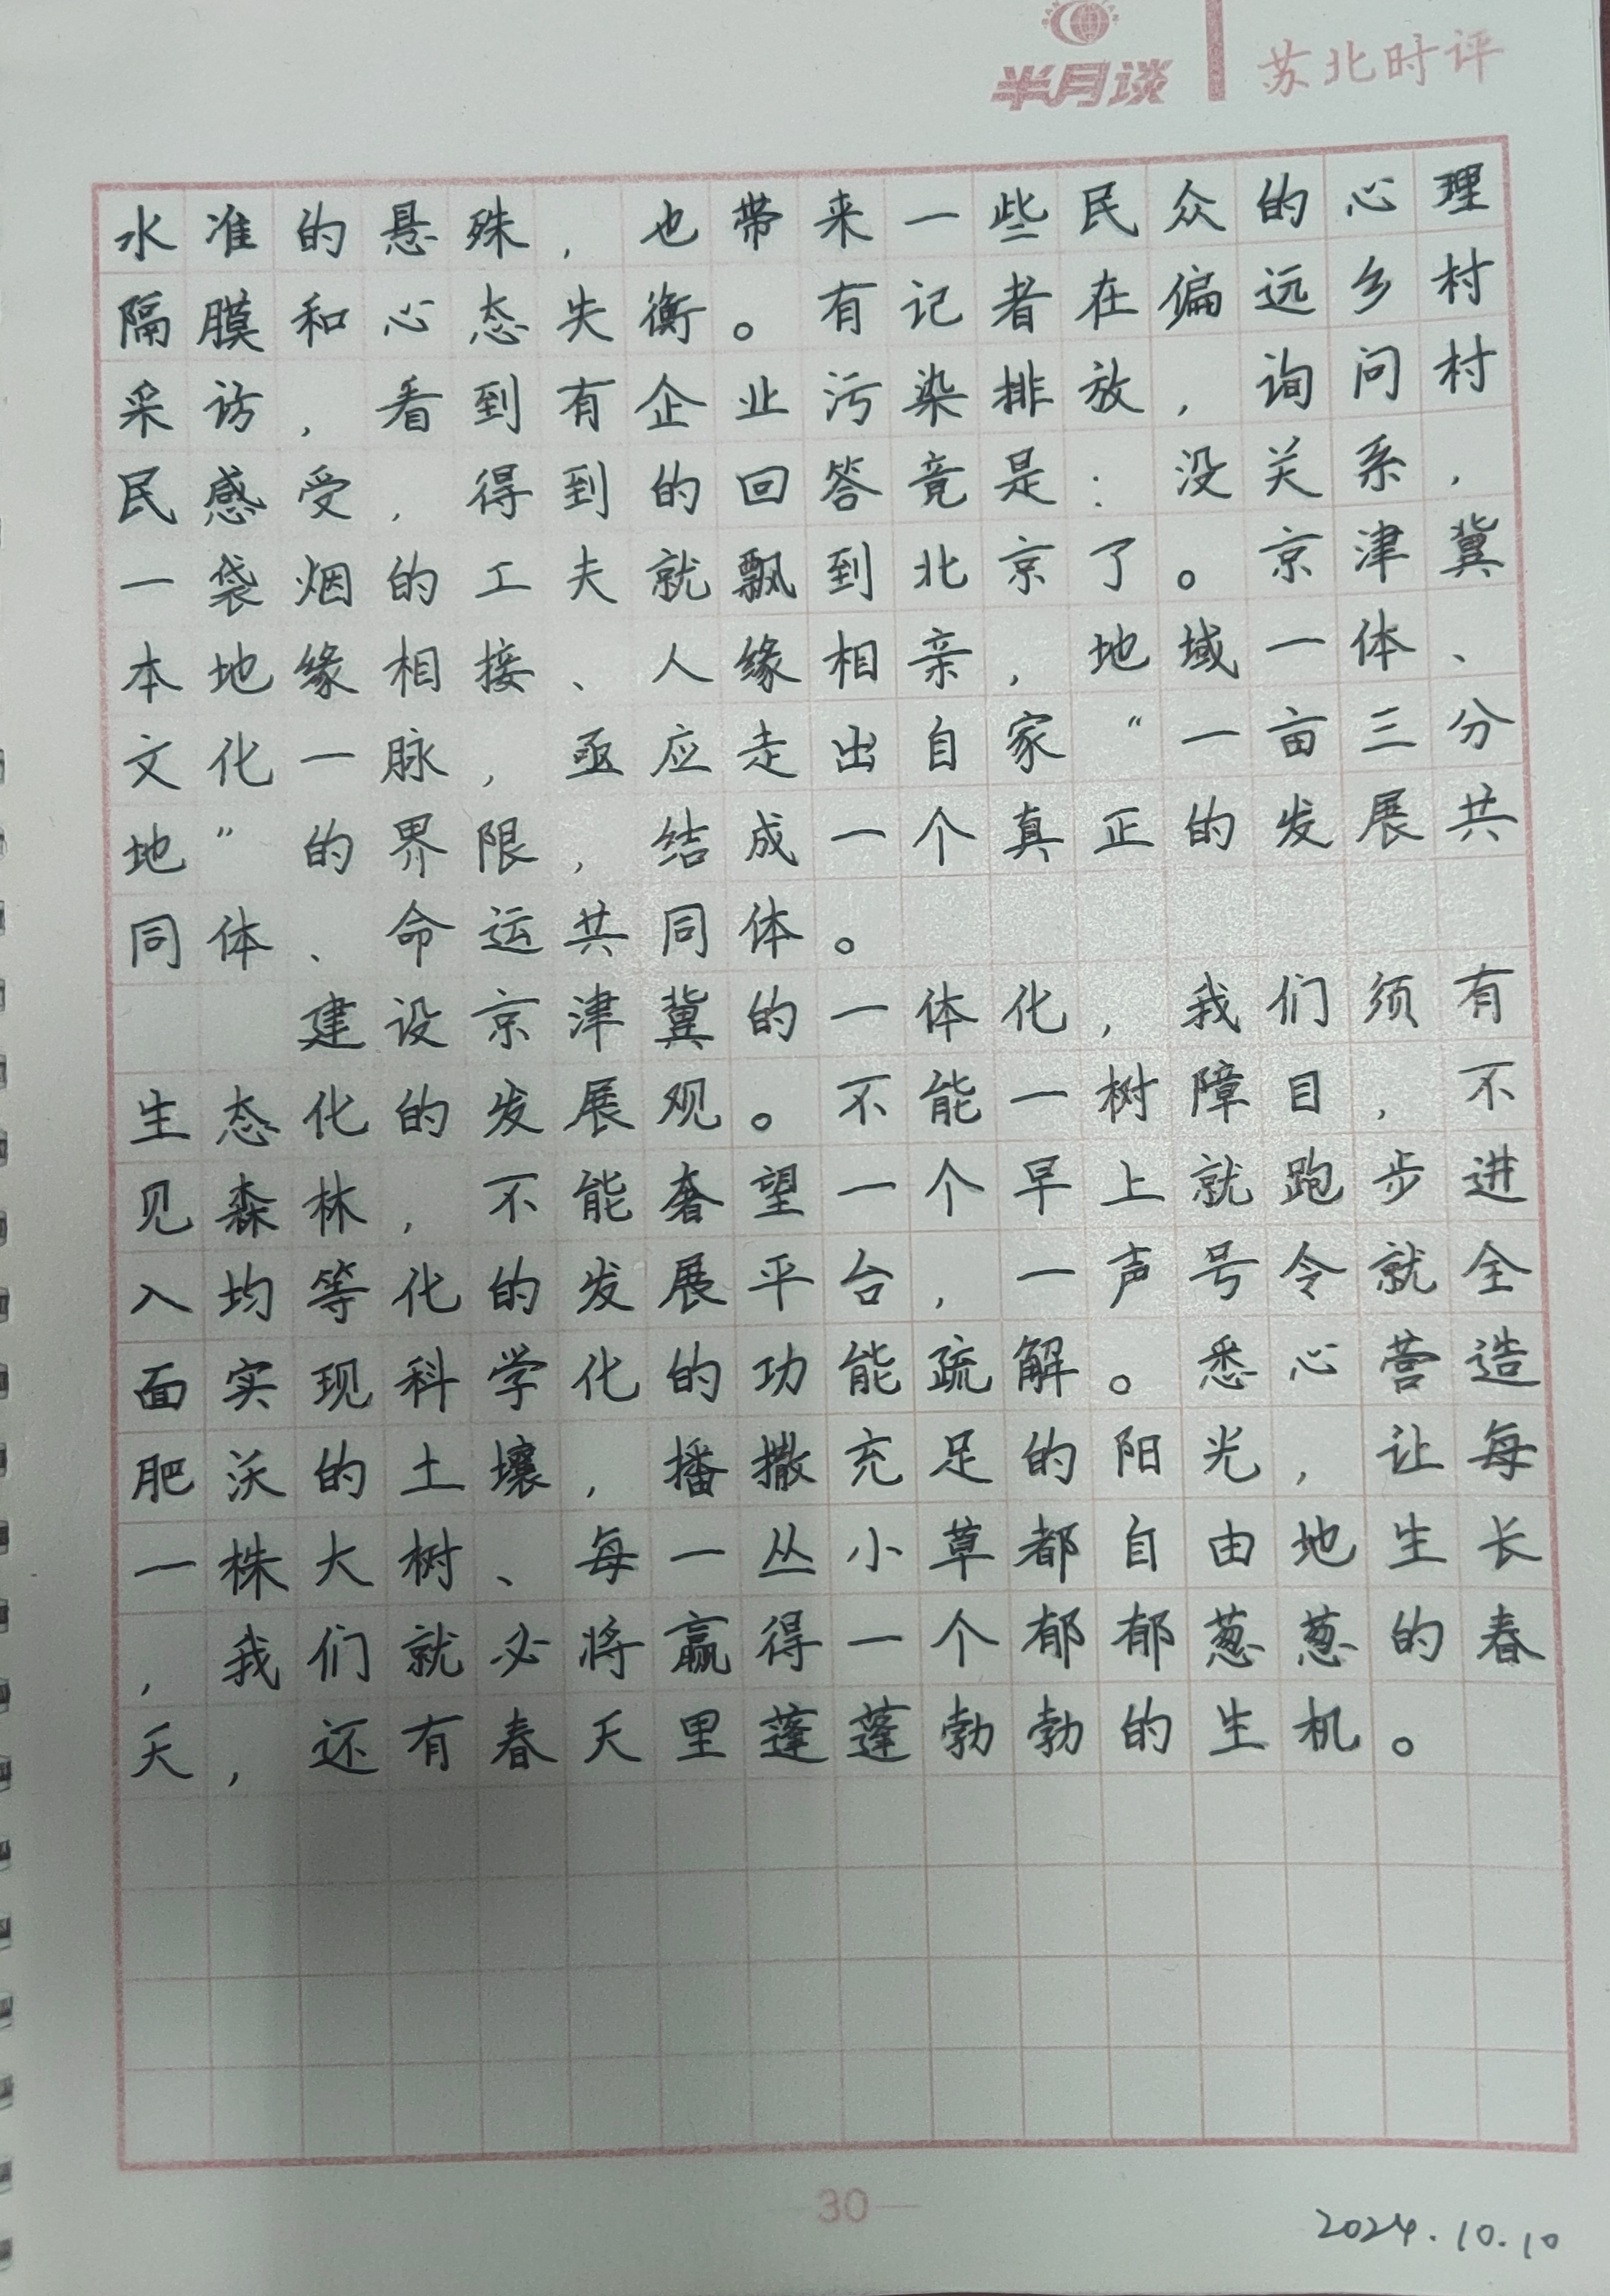 半月谈 苏北时评
水准的悬殊，也带来一些民众的心理
隔膜和心态失衡。有记者在偏远乡村
采访，看到有企业污染排放，询问村
民感受，得到的回答竟是：没关系，
一袋烟的工夫就飘到北京了。京津冀
本地缘相接、人缘相亲，地域一体、
文化一脉，亟应走出自家“一亩三分
地”的界限，结成一个真正的发展共
同体、命运共同体。
建设京津冀的一体化，我们须有
生态化的发展观。不能一树障目，不
见森林，不能奢望一个早上就跑步进
入均等化的发展平台，一声号令就全
面实现科学化的功能疏解。悉心营造
肥沃的土壤，播撒充足的阳光，让每
一株大树、每一丛小草都自由地生长
，我们就必将赢得一个郁郁葱葱的春
天，还有春天里蓬蓬勃勃的生机。
30
2024.10.10